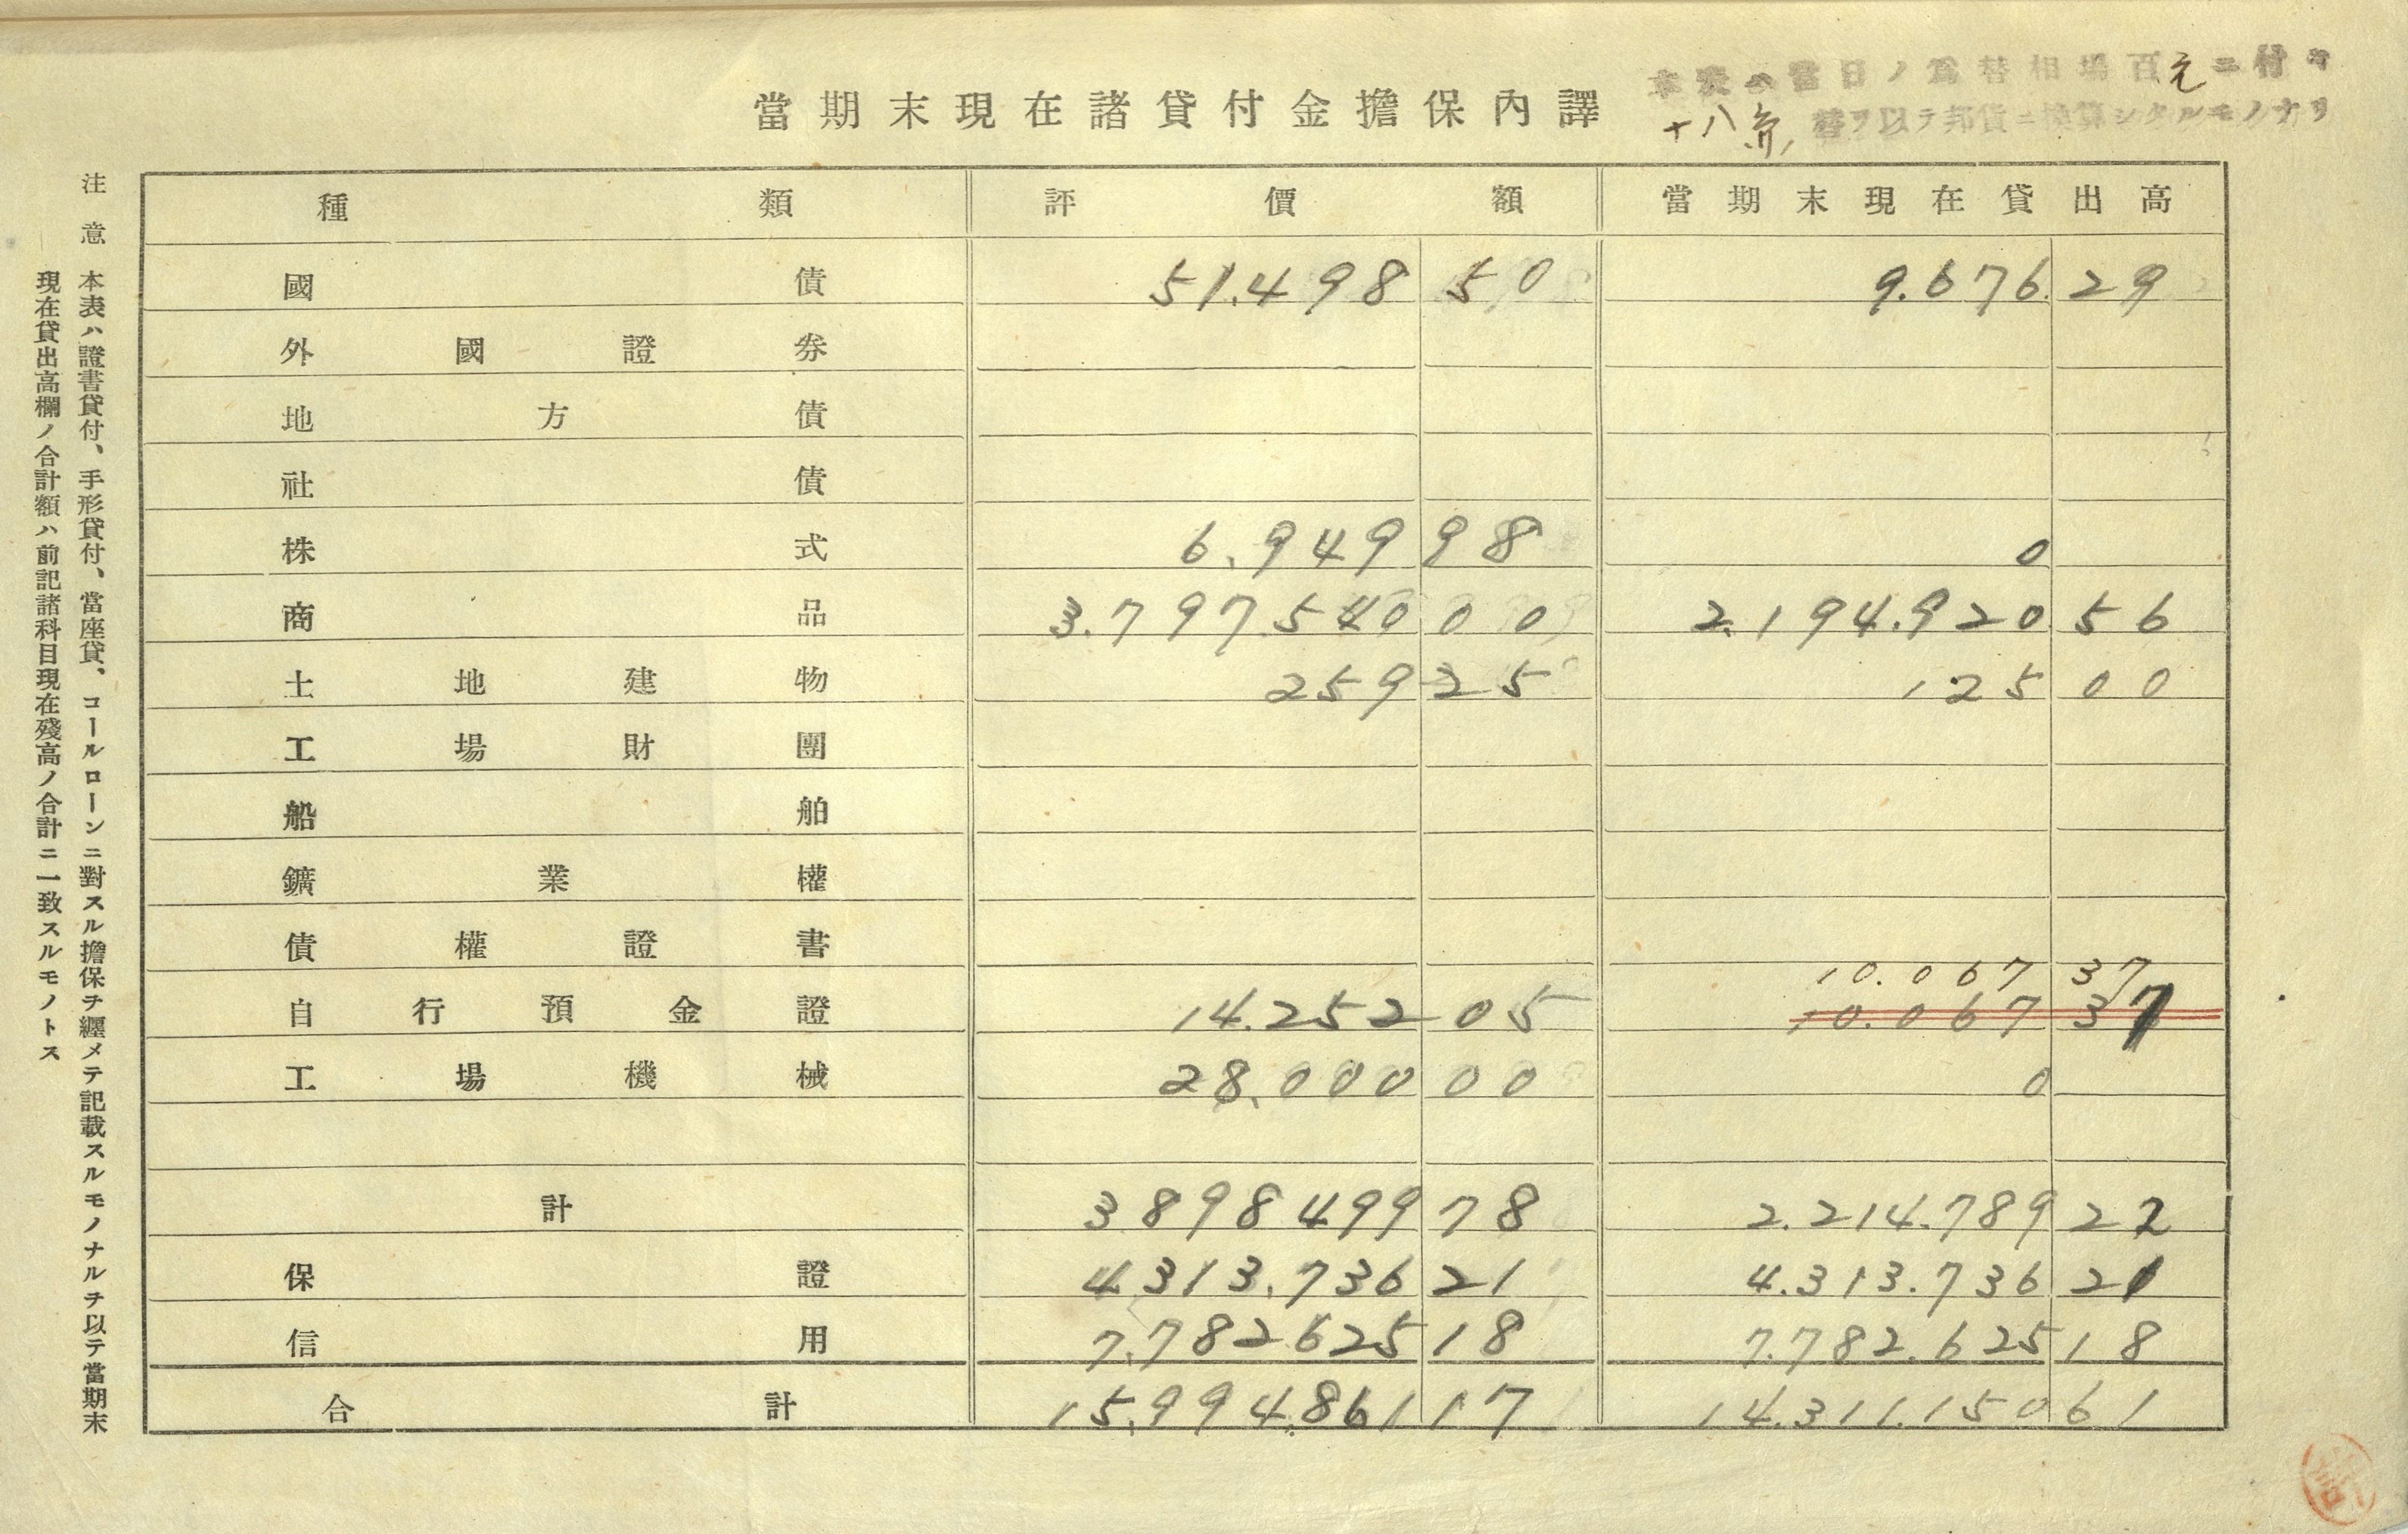 當期末現在諸貸付金擔保內譯
本表ハ當日ノ爲替相場百元ニ付キ
十八弗替ヲ以テ邦貨ニ換算シタルモノナリ
種類 評價額 當期末現在貸出高
國債 51.498 50 9.676. 29
外國證券
地方債
社債
株式 6.949 98 0
商品 3.797.540 00 2.194.920 56
土地建物 259 25 125 00
工場財團
船舶
鑛業權
債權證書
10.067 37
自行預金證 14.252 05 10.067 37
工場機械 28.000 00 0
計 3898499 78 2.214.789 22
保證 4.313.736 21 4.313.736 21
信用 7.782625 18 7.782.625 18
合計 15.994.861 17 14.311.150 61
注意 本表ハ證書貸付、手形貸付、當座貸、コールローンニ對スル擔保ヲ纒メテ記載スルモノナルヲ以テ當期末
現在貸出高欄ノ合計額ハ前記諸科目現在殘高ノ合計ニ一致スルモノトス